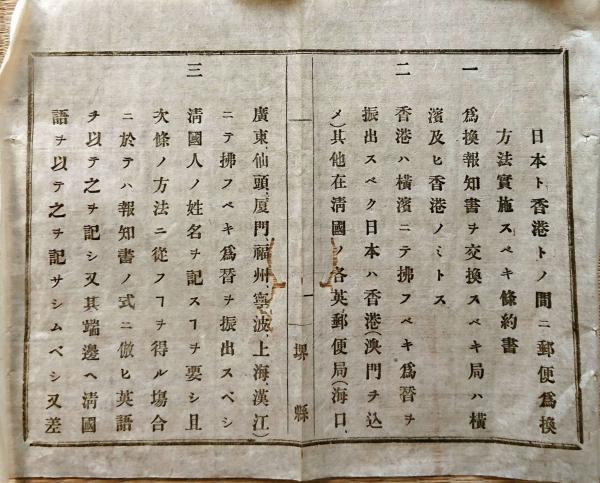 日本ト香港トノ間ニ郵便爲換
方法實施スベキ條約書
一
爲換報知書ヲ交換スベキ局ハ橫
濱及ヒ香港ノミトス
二
香港ハ橫濱ニテ拂フベキ爲替ヲ
振出スベク日本ハ香港(澳門ヲ込
メ)其他在淸國ノ各英郵便局(海口、
一
堺縣
廣東、仙頭、厦門、福州、寧波、上海、漢江)
ニテ拂フベキ爲替ヲ振出スベシ
三
淸國人ノ姓名ヲ記スヿヲ要シ且
次條ノ方法ニ從フヿヲ得ル塲合
ニ於テハ報知書ノ式ニ倣ヒ英語
ヲ以テ之ヲ記シ又其端邊ヘ淸國
語ヲ以テ之ヲ記サシムベシ又差